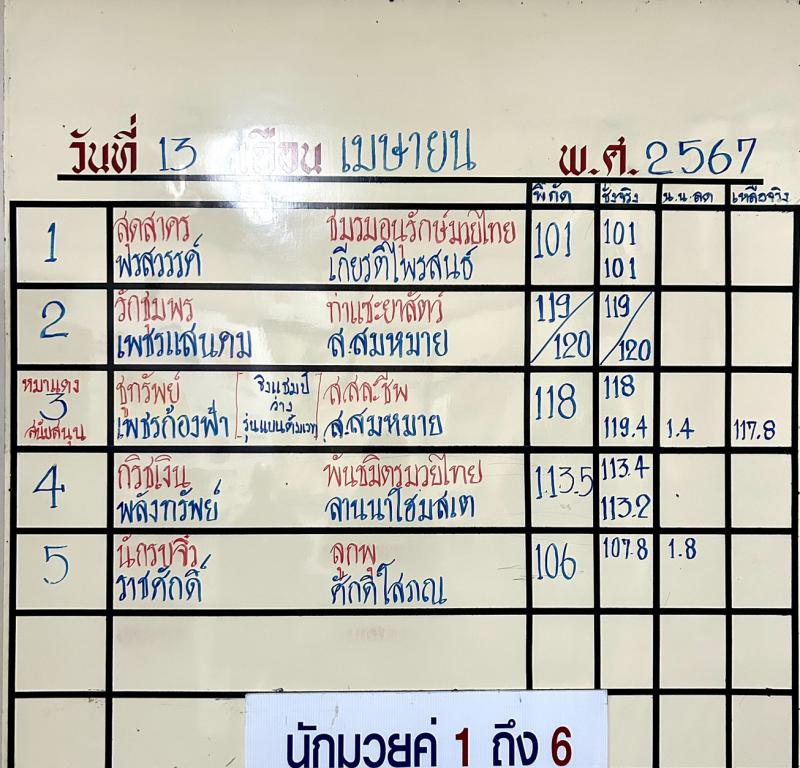 วันที่ 13 เดือน เมษายน พ.ศ. 2567
พิกัด ชั่งจริง น.น.ลด เหลือจริง
1 สุดสาคร ชมรมอนุรักษ์มวยไทย 101 101
พรสวรรค์ เกียรติไพรสนธ์ 101
2 รักชุมพร ท่าแซะยาสัตว์ 119/120 119/120
เพชรแสนคม ส.สมหมาย
หมาแดง 3 สนับสนุน ชูทรัพย์ ชิงแชมป์ ส.สละชีพ 118 118
ว่าง
เพชรก้องฟ้า รุ่นแบนตั้มเวท ส.สมหมาย 119.4 1.4 117.8
4 กวิชเงิน พันธมิตรมวยไทย 113.5 113.4
พลังทรัพย์ ลานนาโฮมสเต 113.2
5 นักรบจิ๋ว ลูกพุ 106 107.8 1.8
ราชศักดิ์ ศักดิ์โสภณ
นักมวยคู่ 1 ถึง 6